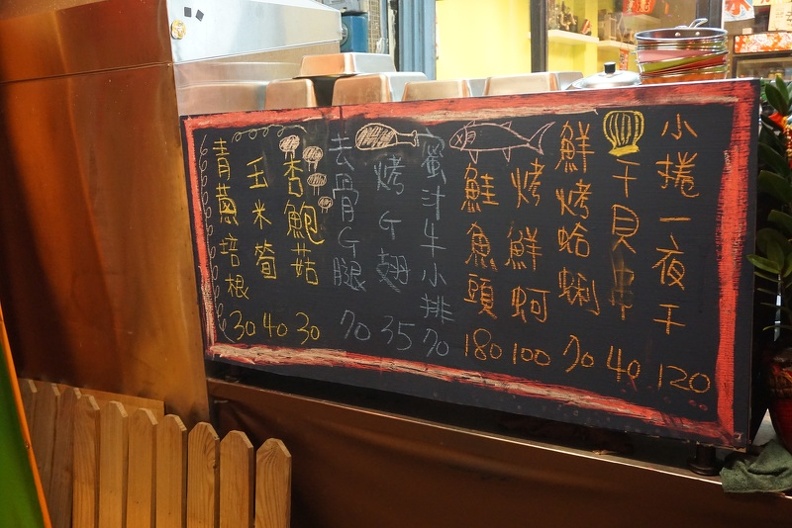 小捲一夜干 120
干貝串 40
鮮烤蛤蜊 70
烤鮮蚵 100
鮭魚頭 180
蜜汁牛小排 70
烤G翅 35
去骨G腿 70
杏鮑菇 30
玉米筍 40
青蔥培根 30